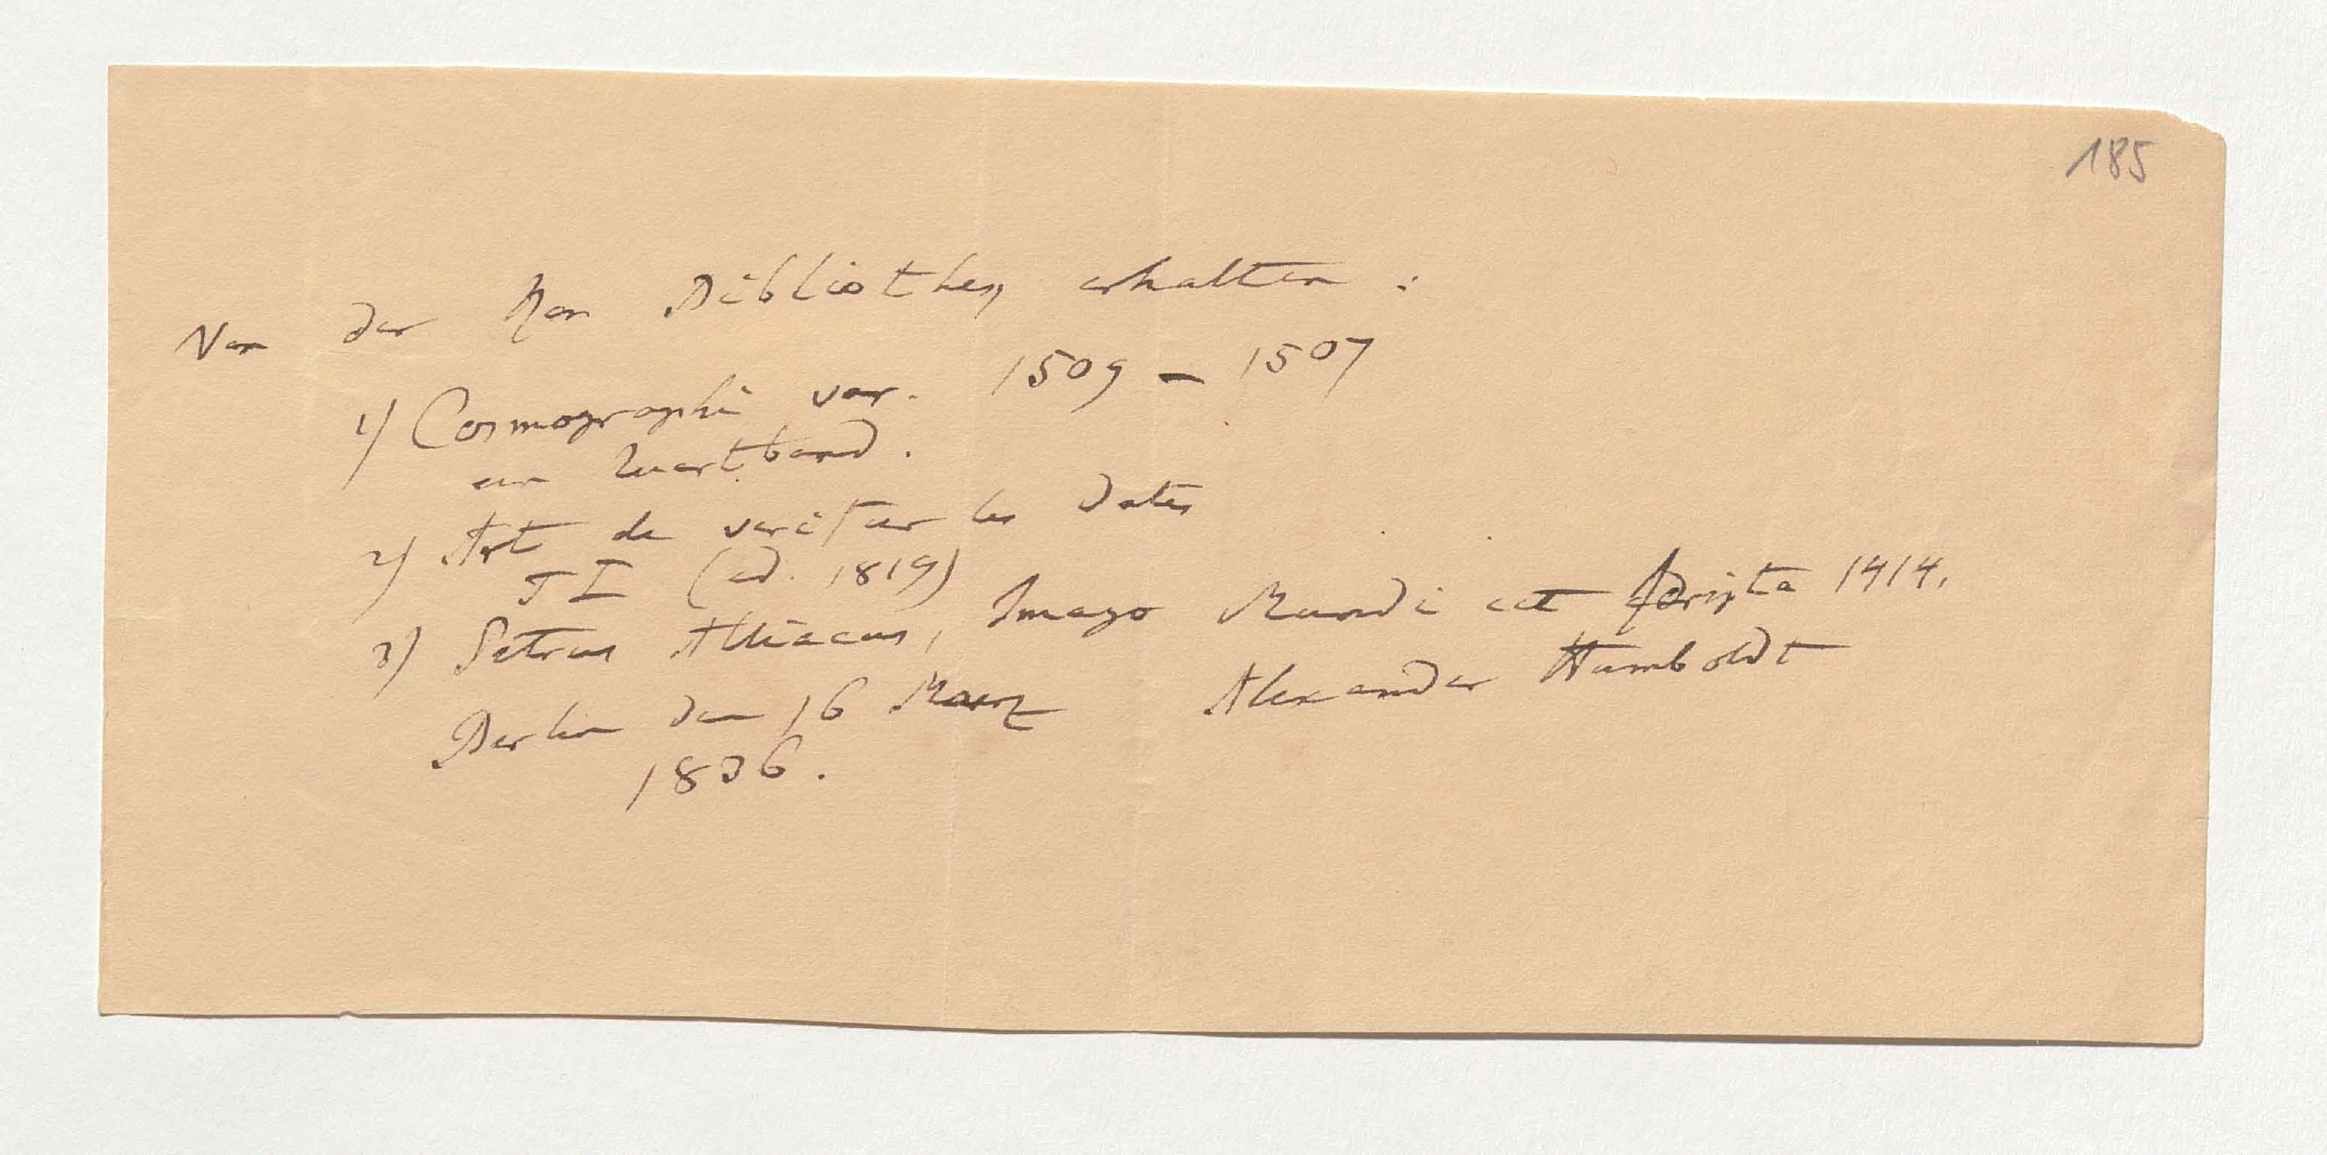 185
Von der Kön Bibliothek erhalten :
1) Cosmographi var. 1509 – 1507
ein Quartband.
2) Art de verifier les Dates
T I (ed. 1819)
3) Petrus Alliacus, Imago Mundi et scripta 1414.
Berlin den 16 Maerz Alexander Humboldt
1836.